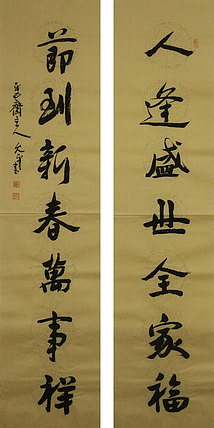 人逢盛世全家福
節到新春萬事祥